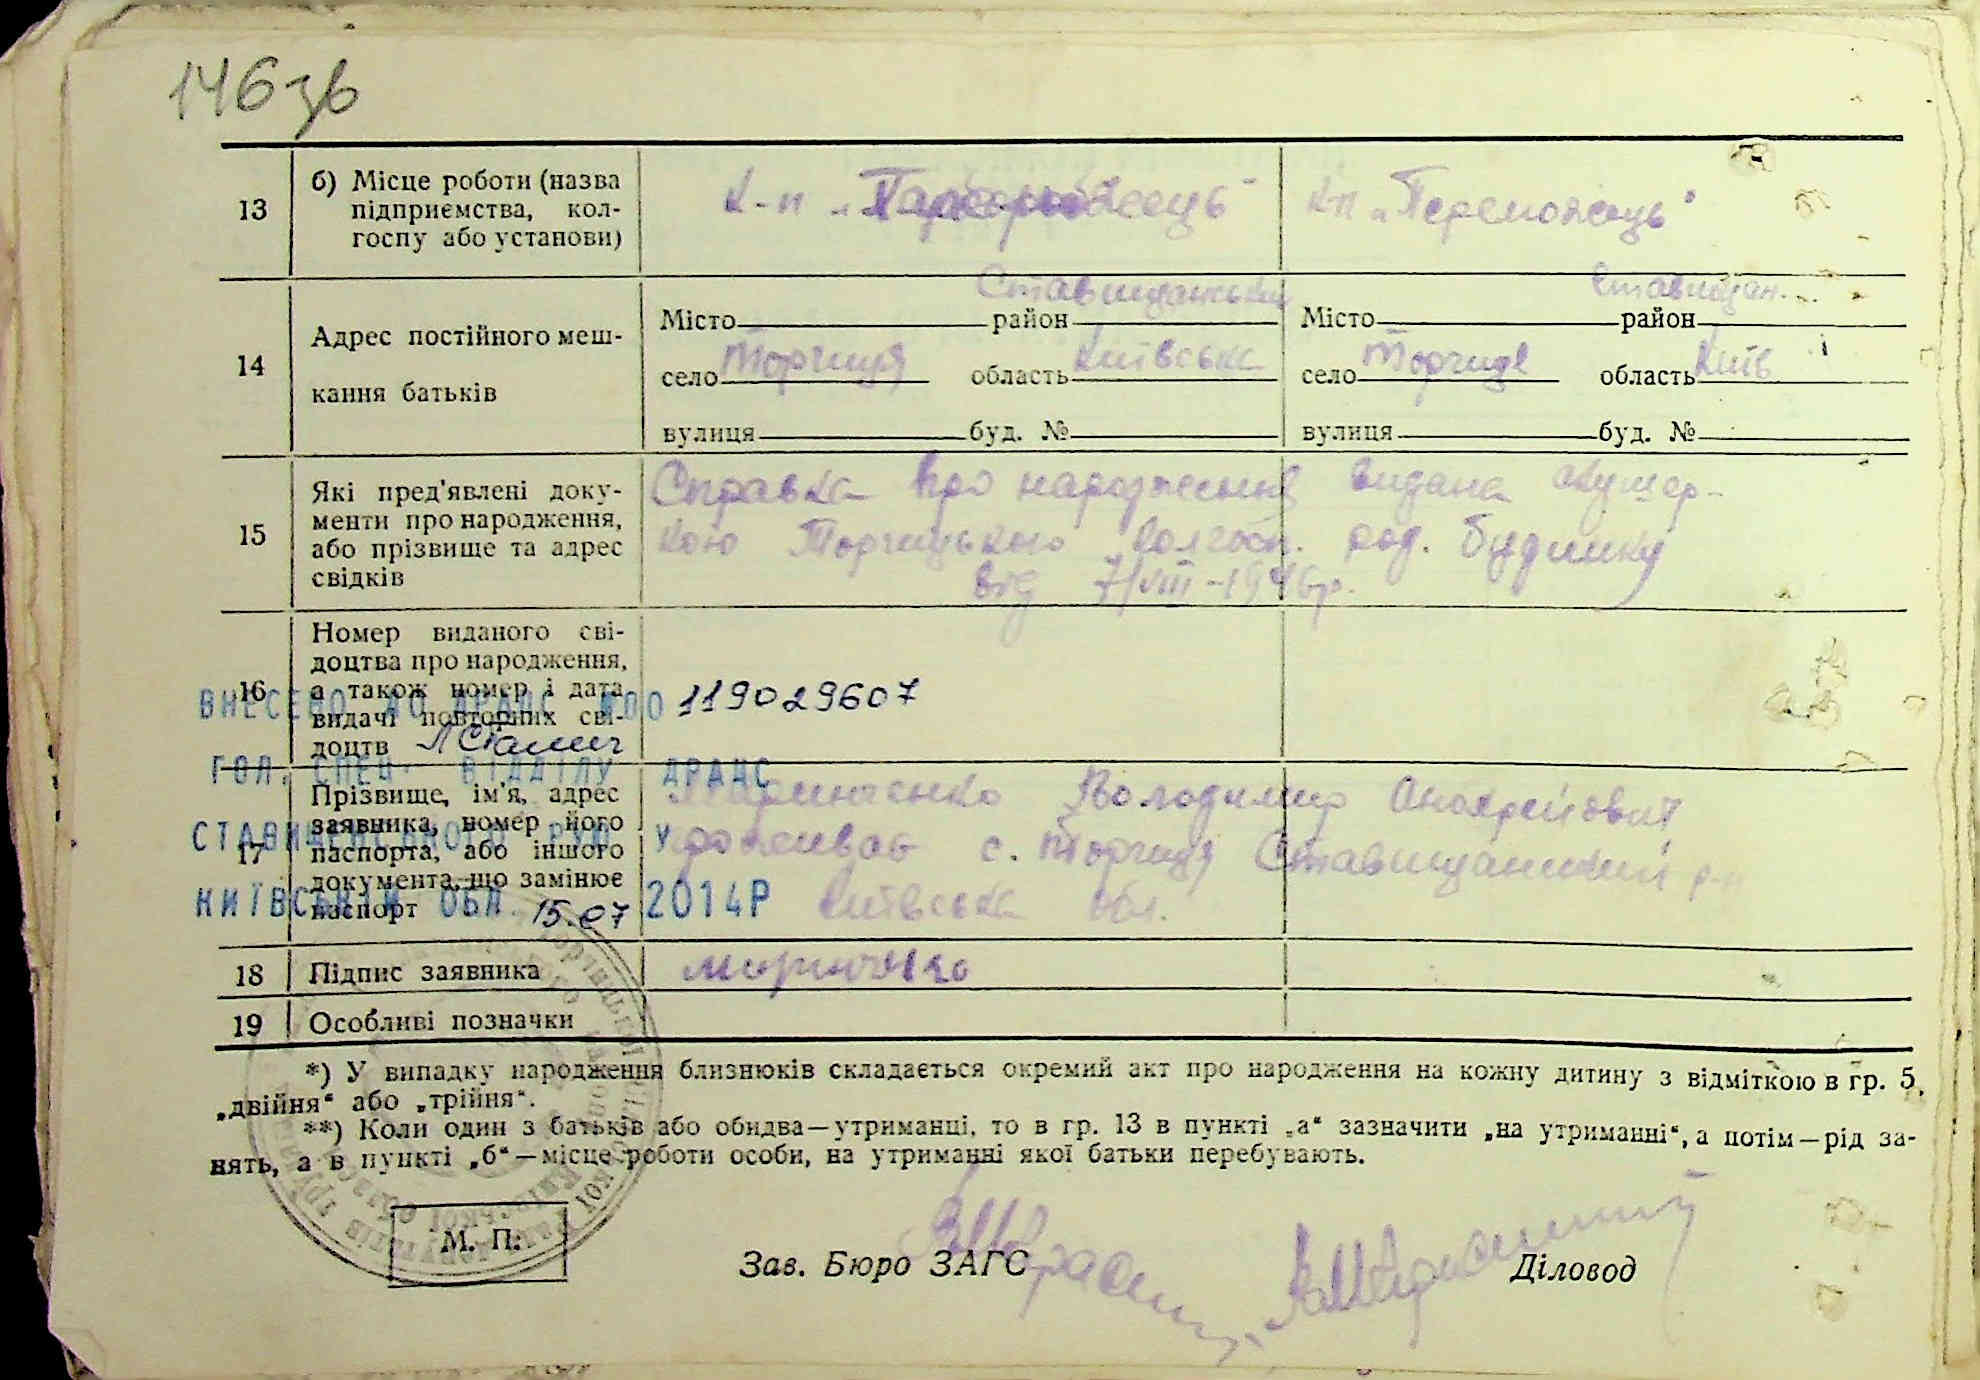 146 зв
13
б) Місце роботи (назва
підприємства, кол-
госпу або установи)
к-п „
к-п „Переможець"
14
Адрес постійного меш-
кання батьків
Ставищанський
Місто район
село Торчиця область Київська
вулиця буд. №
Ставищан.
Місто район
село Торчиця область Київ
вулиця буд. №
15
Які пред'явлені доку-
менти про народження,
або прізвище та адрес
свідків
Справка про народження видана акушер-
кою Торчицького колгосп. род. будинку
від 7/VIII-1946р.
16
Номер виданого сві-
доцтва про народження,
а також номер і дата
видачі повторних сві-
доцтв
ВНЕСЕНО ДО ДРАЦС №00119029607
ГОЛ. СПЕЦ. ВІДДІЛУ ДРАЦС
17
Прізвище, ім'я, адрес
заявника, номер його
паспорта, або іншого
документа, що замінює
паспорт
КИЇВСЬКІЙ ОБЛ. 15.07 2014Р
Маринченко Володимир
проживає с. Торчиця Ставищанський р-н
Київська обл.
18
Підпис заявника
19
Особливі позначки
*) У випадку народження близнюків складається окремий акт про народження на кожну дитину з відміткою в гр. 5,
„двійня" або „трійня".
**) Коли один з батьків або обидва—утриманці, то в гр. 13 в пункті „а" зазначити „на утриманні", а потім—рід за-
нять, а в пункті „б"—місце роботи особи, на утриманні якої батьки перебувають.
М. П.
Зав. Бюро ЗАГС
Діловод